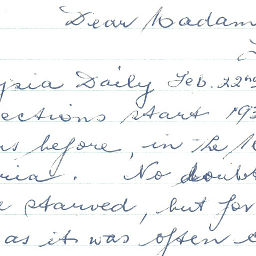 Dear Madam
ysia Daily Feb. 22nd
ections start 193
s before, in the
ria. No doubt
starved, but for
as it was often